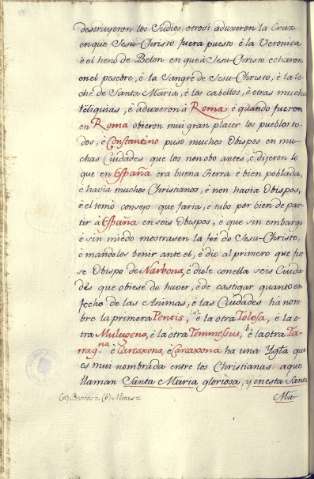 destruyeron los Judios, otrosi aduxeron la Cruz
en que Jesu-Christo fuera puesto è la Veronica
è el heno de Belen en que à Jesu-Christo echaron
en el pesebre, è la Sangre de Jesu-Christo, è la le
che de Santa Maria, è los cabellos, è otras muchas
Reliquias, è aduxeron à Roma è quando fueron
en Roma obieron mui gran placer los pueblos to
dos, è Constantino puso muchos Obispos en mu-
chas Ciudades que los non obo antes, è dijeron le
que en España era buena tierra è bien poblada,
è havia muchos Christianos, è non havia Obispos,
è el tomò consejo que faria, è tubo por bien de par
tir à España en seis Obispos, è que sin embargo
è sin miedo mostrasen la feè de Jesu-Christo,
è mandolos venir ante el, è dio al primero que fue
se Obispo de Narbona, è diole con ella seis Ciuda
des que obiese de haver, è de castigar quanto en
fecho de las Animas, è las Ciudades ha nom
bre la primera è la otra Tolosa, è la o
tra è la otra è la otra Ta-
rrag.na è Carcaxona, è Carcaxona ha una Ygl.a que
es mui nombrada entre los Christianos à que
llaman Santa Maria gloriosa, y en esta Santa
Ma-